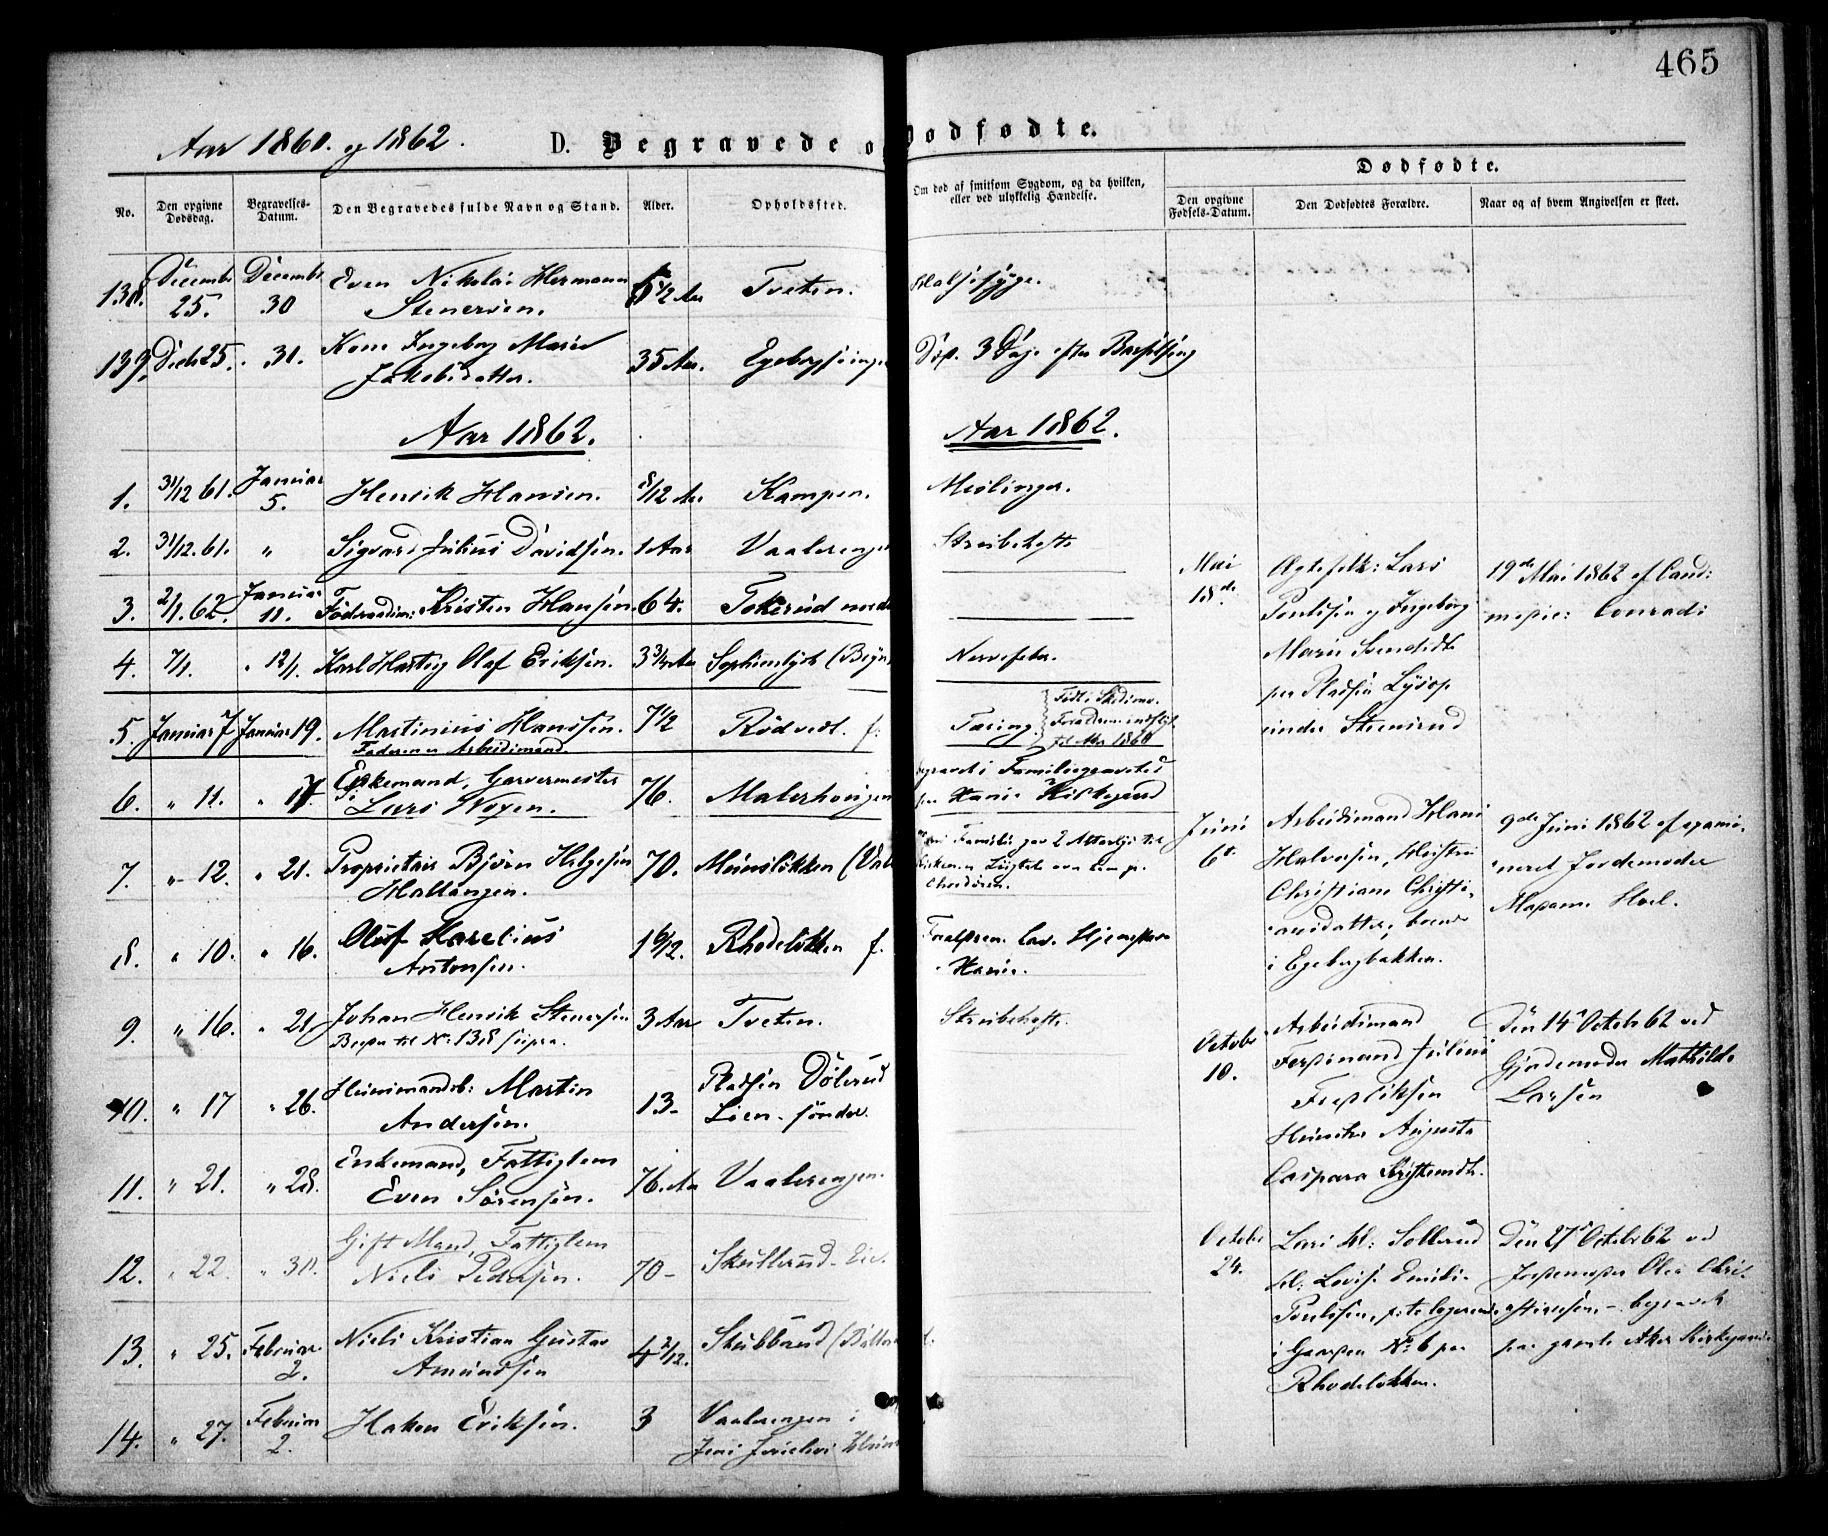 465
Aar 1861. og 1862.
D. Begravede o
Dødfødte.
No.
Den opgivne Dødsdag.
Begravelses-Datum.
Den Begravedes fulde Navn og Stand.
Alder.
Opholdssted.
Om død af smitsom Sygdom, og da hvilken, eller ved ulykkelig Hændelse.
Dødfødte.
Den opgivne Fødsels-Datum.
Den Dødfødtes Forældre.
Naar og af hvem Angivelsen er skeet.
138. Decembr 25. Decembr 30 Even Nikolai Hermann 1/2 Aar Tveten. Halssyge.
Stenersen.
139. Decb 25. 31. Kone Ingeborg Marie 35 Aar. Død 3 Dage efter Barselseng
Jakobsdatter.
Aar 1862.
Aar 1862.
1. 31/12 61. Januar 5. Henrik Hansen. 8/12 Aar Kampen. Meslinger.
2. 31/12. 61. " Sigvard Julius Davidsen. 1 Aar Vaalerengen Strubehoste
3. 2/1. 62. Januar 11. Føderaadsm: Kristen Hansen. 64. Tokerud nordr
4. 7/1. " 12/1. Karl Hartvig Olaf Eriksen. 3 3/4 Aar Sophienlyst (Bryn Nervefeber.
5. Januar 7 Januar 19. Martinius Hanssen. 7 1/2 Rødvedt. f. Tæring. Født i
Faderen er Arbeidsmand. til Aker 1860
6. " 11. " 17. Enkemand, Garvermester 76. Malerhougen Begravet i Familiegravsted
Lars Noxen. paa Kirkegaard
7. " 12. " 21. Proprietair Bjørn Helgesen 70. Munsløkken (Vaal Familie gav 2 til
Hallangen. Kirken
8. " 10. " 16. Oluf Karelius 1 6/12. Rhodeløkken f. Forældren
Antonsen.
9 " 16. " 21. Johan Henrik Stenersen 3 Aar Tveten. Strubehoste.
No: 138 supra.
10. " 17 " 26. Huusmandsb: Martin 13- Pladsen Dølerud
Andersen. Lien søndre.
11. " 21. " 28. Enkemand, Fattiglem 76. Aar Vaalerengen.
Even Sørensen.
12. " 22. " 30. Gift Mand, Fattiglem 70- Skullerud Eie.
Niels Pedersen.
13. " 25. Februar 2. Niels Kristian Gustav 4 2/12. Skubberud
Amundsen
14. " 27. Februar 2. Haken Eriksen. 3 Vaalerengen i
Mai 18de. Ægtefolk: Lars
Poulsen og Ingeborg
Marie Svendsdt.
paa Pladsen Lysop
under Steensrud
19de Mai 1862 af Cand:
Conradi
Juni 6te. Arbeidsmand Hans
Halvorsen, Hustru
Christiane Christi-
ansdatter, boende
i Egebergbakken.
9de Juni 1862 af exami-
neret Jordemoder
Madame Hoel.
Octobr 10. Arbeidsmand
Ferdinand Julius
Fredriksen
Hustru Augusta
Caspara Kristensdt.
Den 14 Octobr 62 ved
Gjordemoder Mathilde
Larsen
Octobr 24. Lars Sollerud
Lovise Emilie
Poulsen,
i Gaarden No 6 paa
Rhodeløkken.
Den 27 Octobr 62 ved
Jordemoder Olea Chri-
begravet
paa gamle Aker Kirkegaard